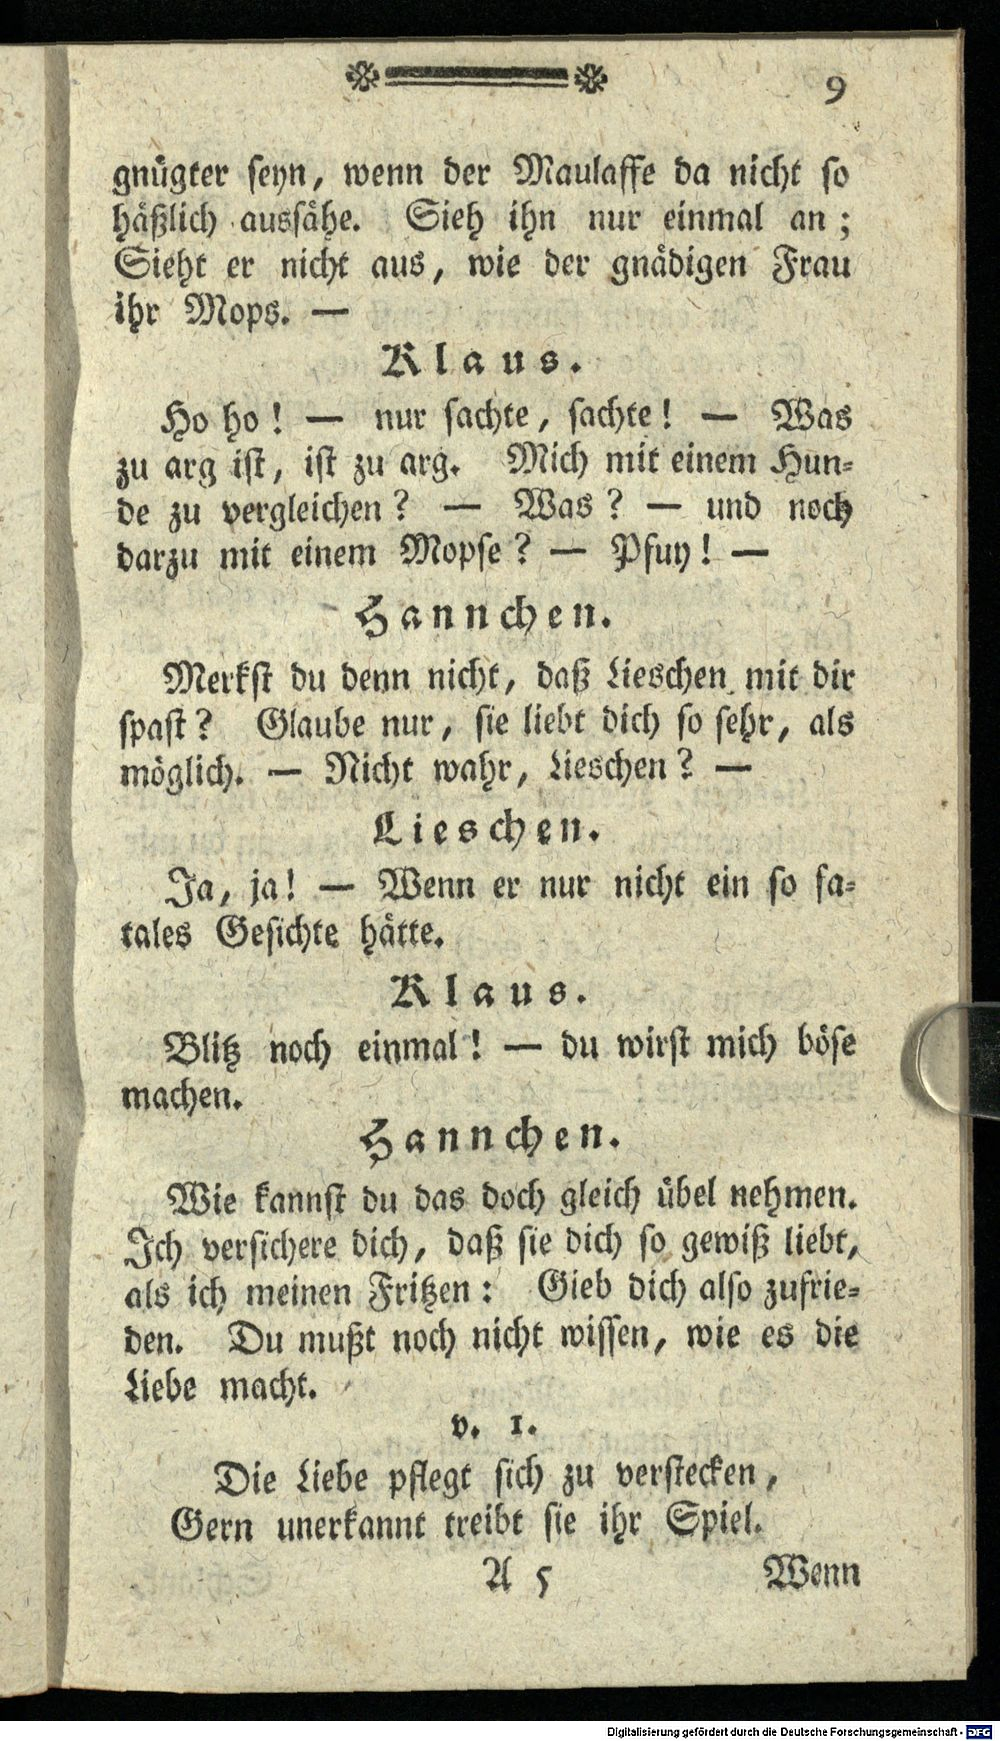 9
gnügter seyn, wenn der Maulaffe da nicht so
häßlich aussähe. Sieh ihn nur einmal an;
Sieht er nicht aus, wie der gnädigen Frau
ihr Mops. —
Klaus.
Ho ho! — nur sachte, sachte! — Was
zu arg ist, ist zu arg. Mich mit einem Hun-
de zu vergleichen? — Was? — und noch
darzu mit einem Mopse? — Pfuy! —
Hannchen.
Merkst du denn nicht, daß Lieschen mit dir
spast? Glaube nur, sie liebt dich so sehr, als
möglich. — Nicht wahr, Lieschen? —
Lieschen.
Ja, ja! — Wenn er nur nicht ein so fa-
tales Gesichte hätte.
Klaus.
Blitz noch einmal! — du wirst mich böse
machen.
Hannchen.
Wie kannst du das doch gleich übel nehmen.
Ich versichere dich, daß sie dich so gewiß liebt,
als ich meinen Fritzen: Gieb dich also zufrie-
den. Du mußt noch nicht wissen, wie es die
Liebe macht.
v. 1.
Die Liebe pflegt sich zu verstecken,
Gern unerkannt treibt sie ihr Spiel.
A 5 Wenn
Digitalisierung gefördert durch die Deutsche Forschungsgemeinschaft - DFG